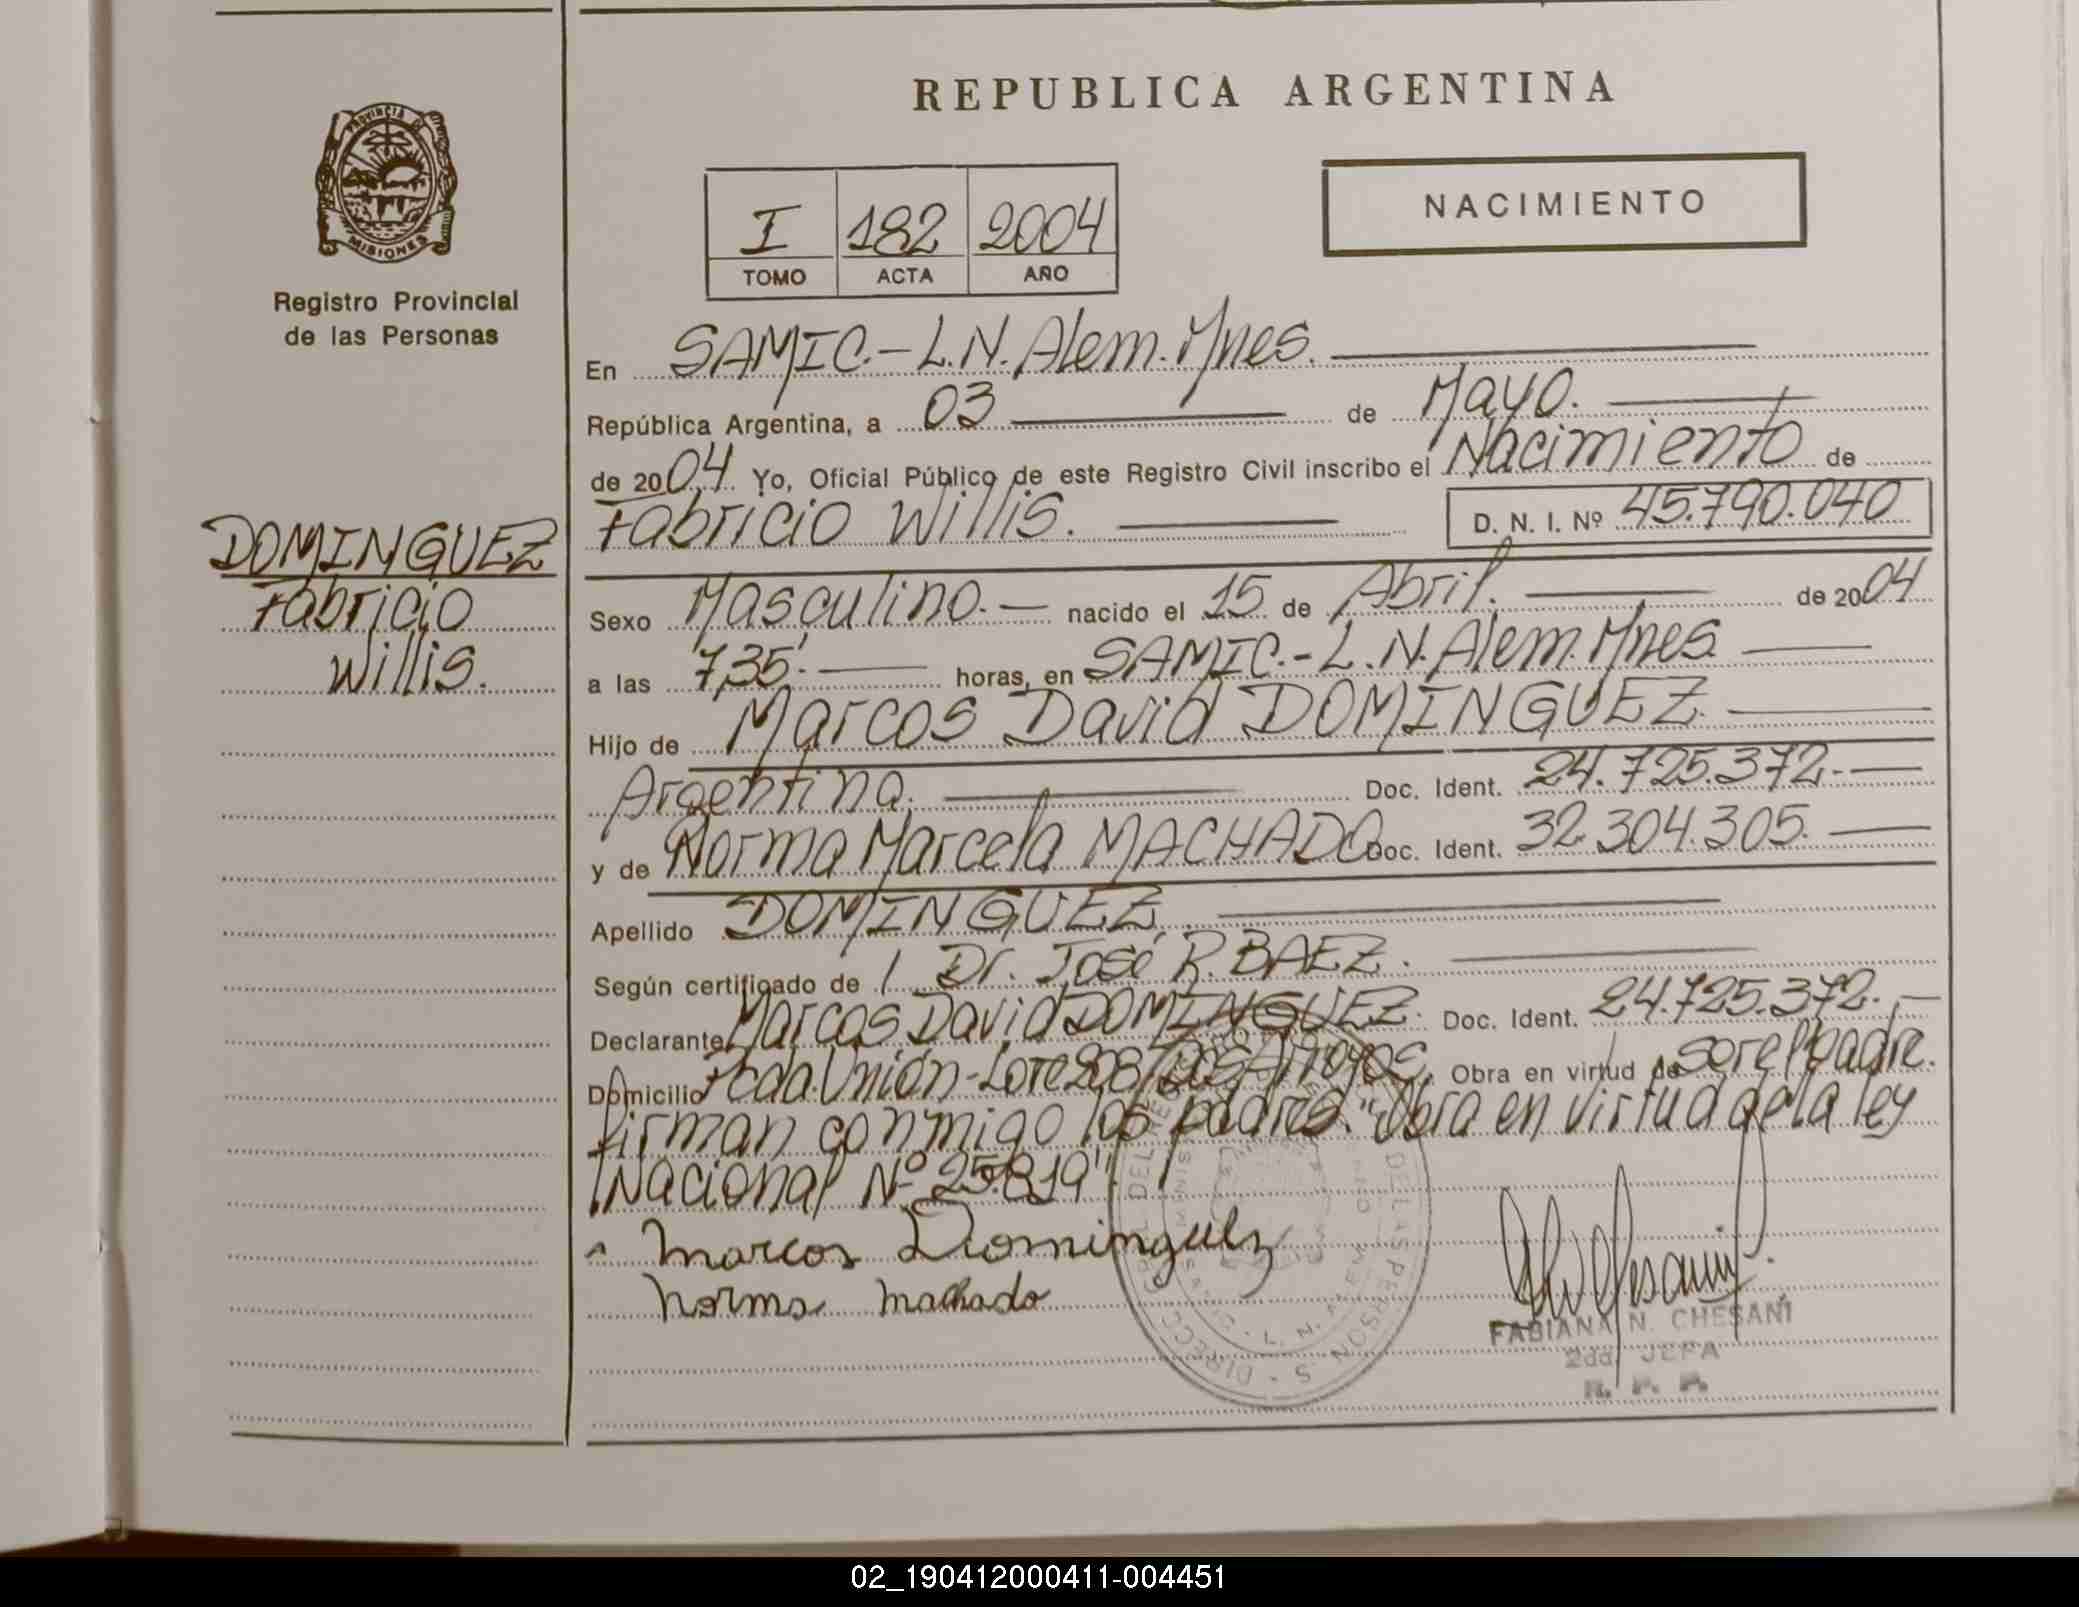 REPUBLICA ARGENTINA
PROVINCIA DE
MISIONES
Registro Provincial
de las Personas
I 182 2004
TOMO ACTA AÑO
NACIMIENTO
En SAMIC.- L.N. Alem. Mnes.
República Argentina, a 03 de Mayo.
de 2004 Yo, Oficial Público de este Registro Civil inscribo el Nacimiento de
Fabricio Willis. D. N. I. Nº 45.790.040
DOMINGUEZ
Fabricio
Willis.
Sexo Masculino.- nacido el 15 de Abril. de 2004
a las 7,35'.- horas, en SAMIC.- L.N. Alem. Mnes.
Hijo de Marcos David DOMINGUEZ.
Argentina. Doc. Ident. 24.725.372.-
y de Norma Marcela MACHADO Doc. Ident. 32.304.305.
Apellido DOMINGUEZ.
Según certificado de / Dr. José R. BAEZ.
Declarante Marcos David DOMINGUEZ. Doc. Ident. 24.725.372.-
Domicilio Pcda. Unión - Lote 208 Los Arroyos. Obra en virtud de ser el padre.
Firman conmigo los padres. "Obra en virtud de la ley
Nacional Nº 25.819".
Marcos Dominguez
Norma Machado
FABIANA N. CHESANI
2da. JEFA
R. P. P.
02_190412000411-004451